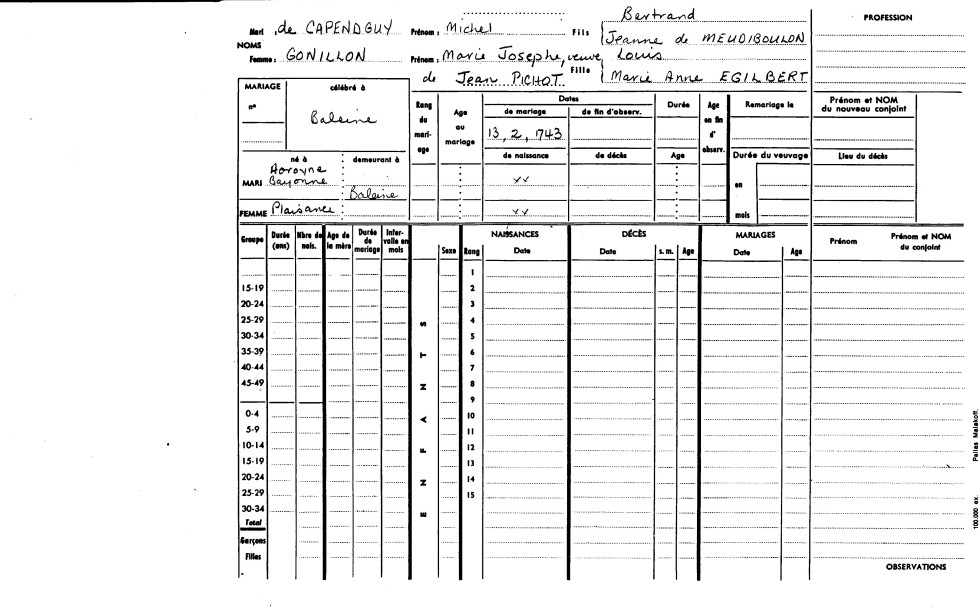 Bertrand
PROFESSION
Mari , de CAPENDGUY Prénom : Michel Fils Jeanne de MEUDIBOULON
NOMS
Femme : GONILLON Prénom : Marie Josephe, veuve Louis
de Jean PICHOT Fille Marie Anne EGILBERT
MARIAGE célébré à
n° Baleine
Rang du mari-age
Age au mariage
Dates
de mariage de fin d'observ.
13, 2, 1743
Durée
Age en fin d' observ.
Remariage le
Prénom et NOM du nouveau conjoint
né à demeurant à
de naissance de décès Age Durée du veuvage Lieu du décès
MARI Bayonne Baleine
xx
en
FEMME Plaisance
xx
mois
Groupe Durée (ans) Nbre de nais. Age de la mère Durée de mariage Inter-valle en mois
Sexe Rang
NAISSANCES DÉCÈS MARIAGES
Date Date s. m. Age Date Age
Prénom Prénom et NOM du conjoint
1
15-19 2
20-24 3
25-29 4
30-34 5
35-39 6
40-44 7
45-49 8
9
0-4 10
5-9 11
10-14 12
15-19 13
20-24 14
25-29 15
30-34
Total
Garçons
Filles
E N F A N T S
OBSERVATIONS
100.000 ex. Pallas Malakoff.